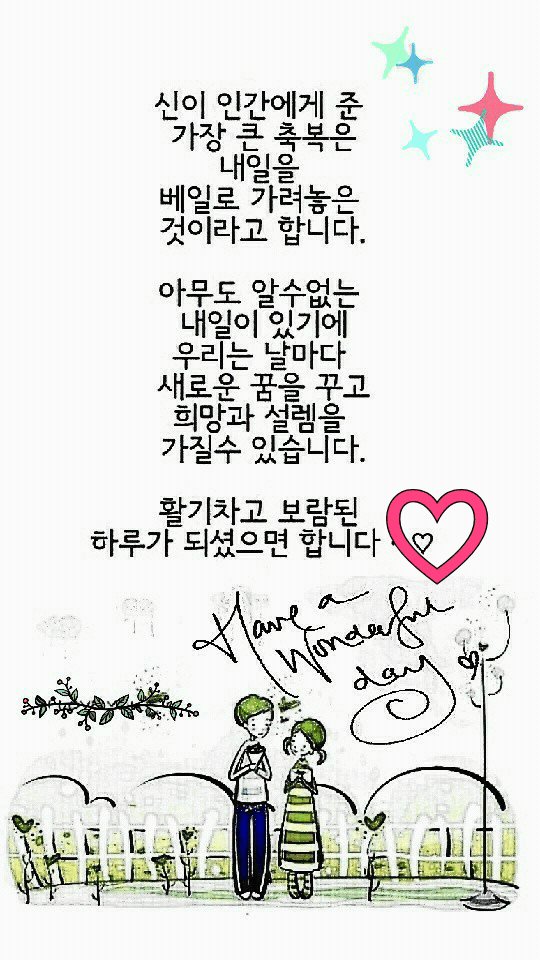 신이 인간에게 준
가장 큰 축복은
내일을
베일로 가려놓은
것이라고 합니다.
아무도 알수없는
내일이 있기에
우리는 날마다
새로운 꿈을 꾸고
희망과 설렘을
가질수 있습니다.
활기차고 보람된
하루가 되셨으면 합니다
Have a
Wonderful
day